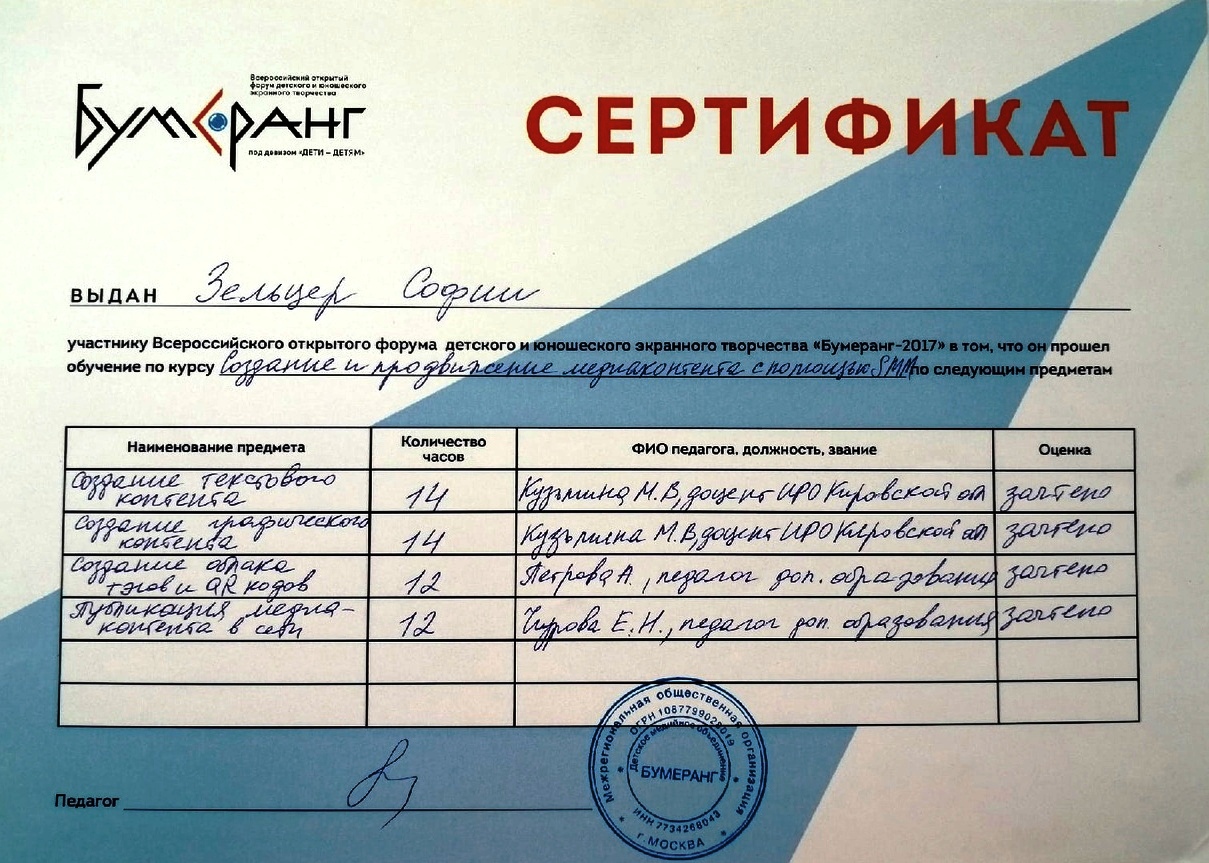 Всероссийский открытый
форум детского и юношеского
экранного творчества
БУМЕРАНГ
под девизом «ДЕТИ – ДЕТЯМ»
СЕРТИФИКАТ
ВЫДАН Зельцер Софии
участнику Всероссийского открытого форума детского и юношеского экранного творчества «Бумеранг-2017» в том, что он прошел
обучение по курсу Создание и продвижение медиаконтента с помощью SMM по следующим предметам
Наименование предмета Количество часов ФИО педагога, должность, звание Оценка
Создание текстового контента 14 Кузьмина М.В, доцент ИРО Кировской обл зачтено
Создание графического контента 14 Кузьмина М.В, доцент ИРО Кировской обл зачтено
Создание облака тэгов и QR кодов 12 Петрова А., педагог доп. образования зачтено
Публикация медиа-контента в сети 12 Чурова Е.Н., педагог доп. образования зачтено
Педагог
Межрегиональная общественная организация
ОГРН 1087799028019
Детское медийное объединение
БУМЕРАНГ
ИНН 7734268043
г. МОСКВА